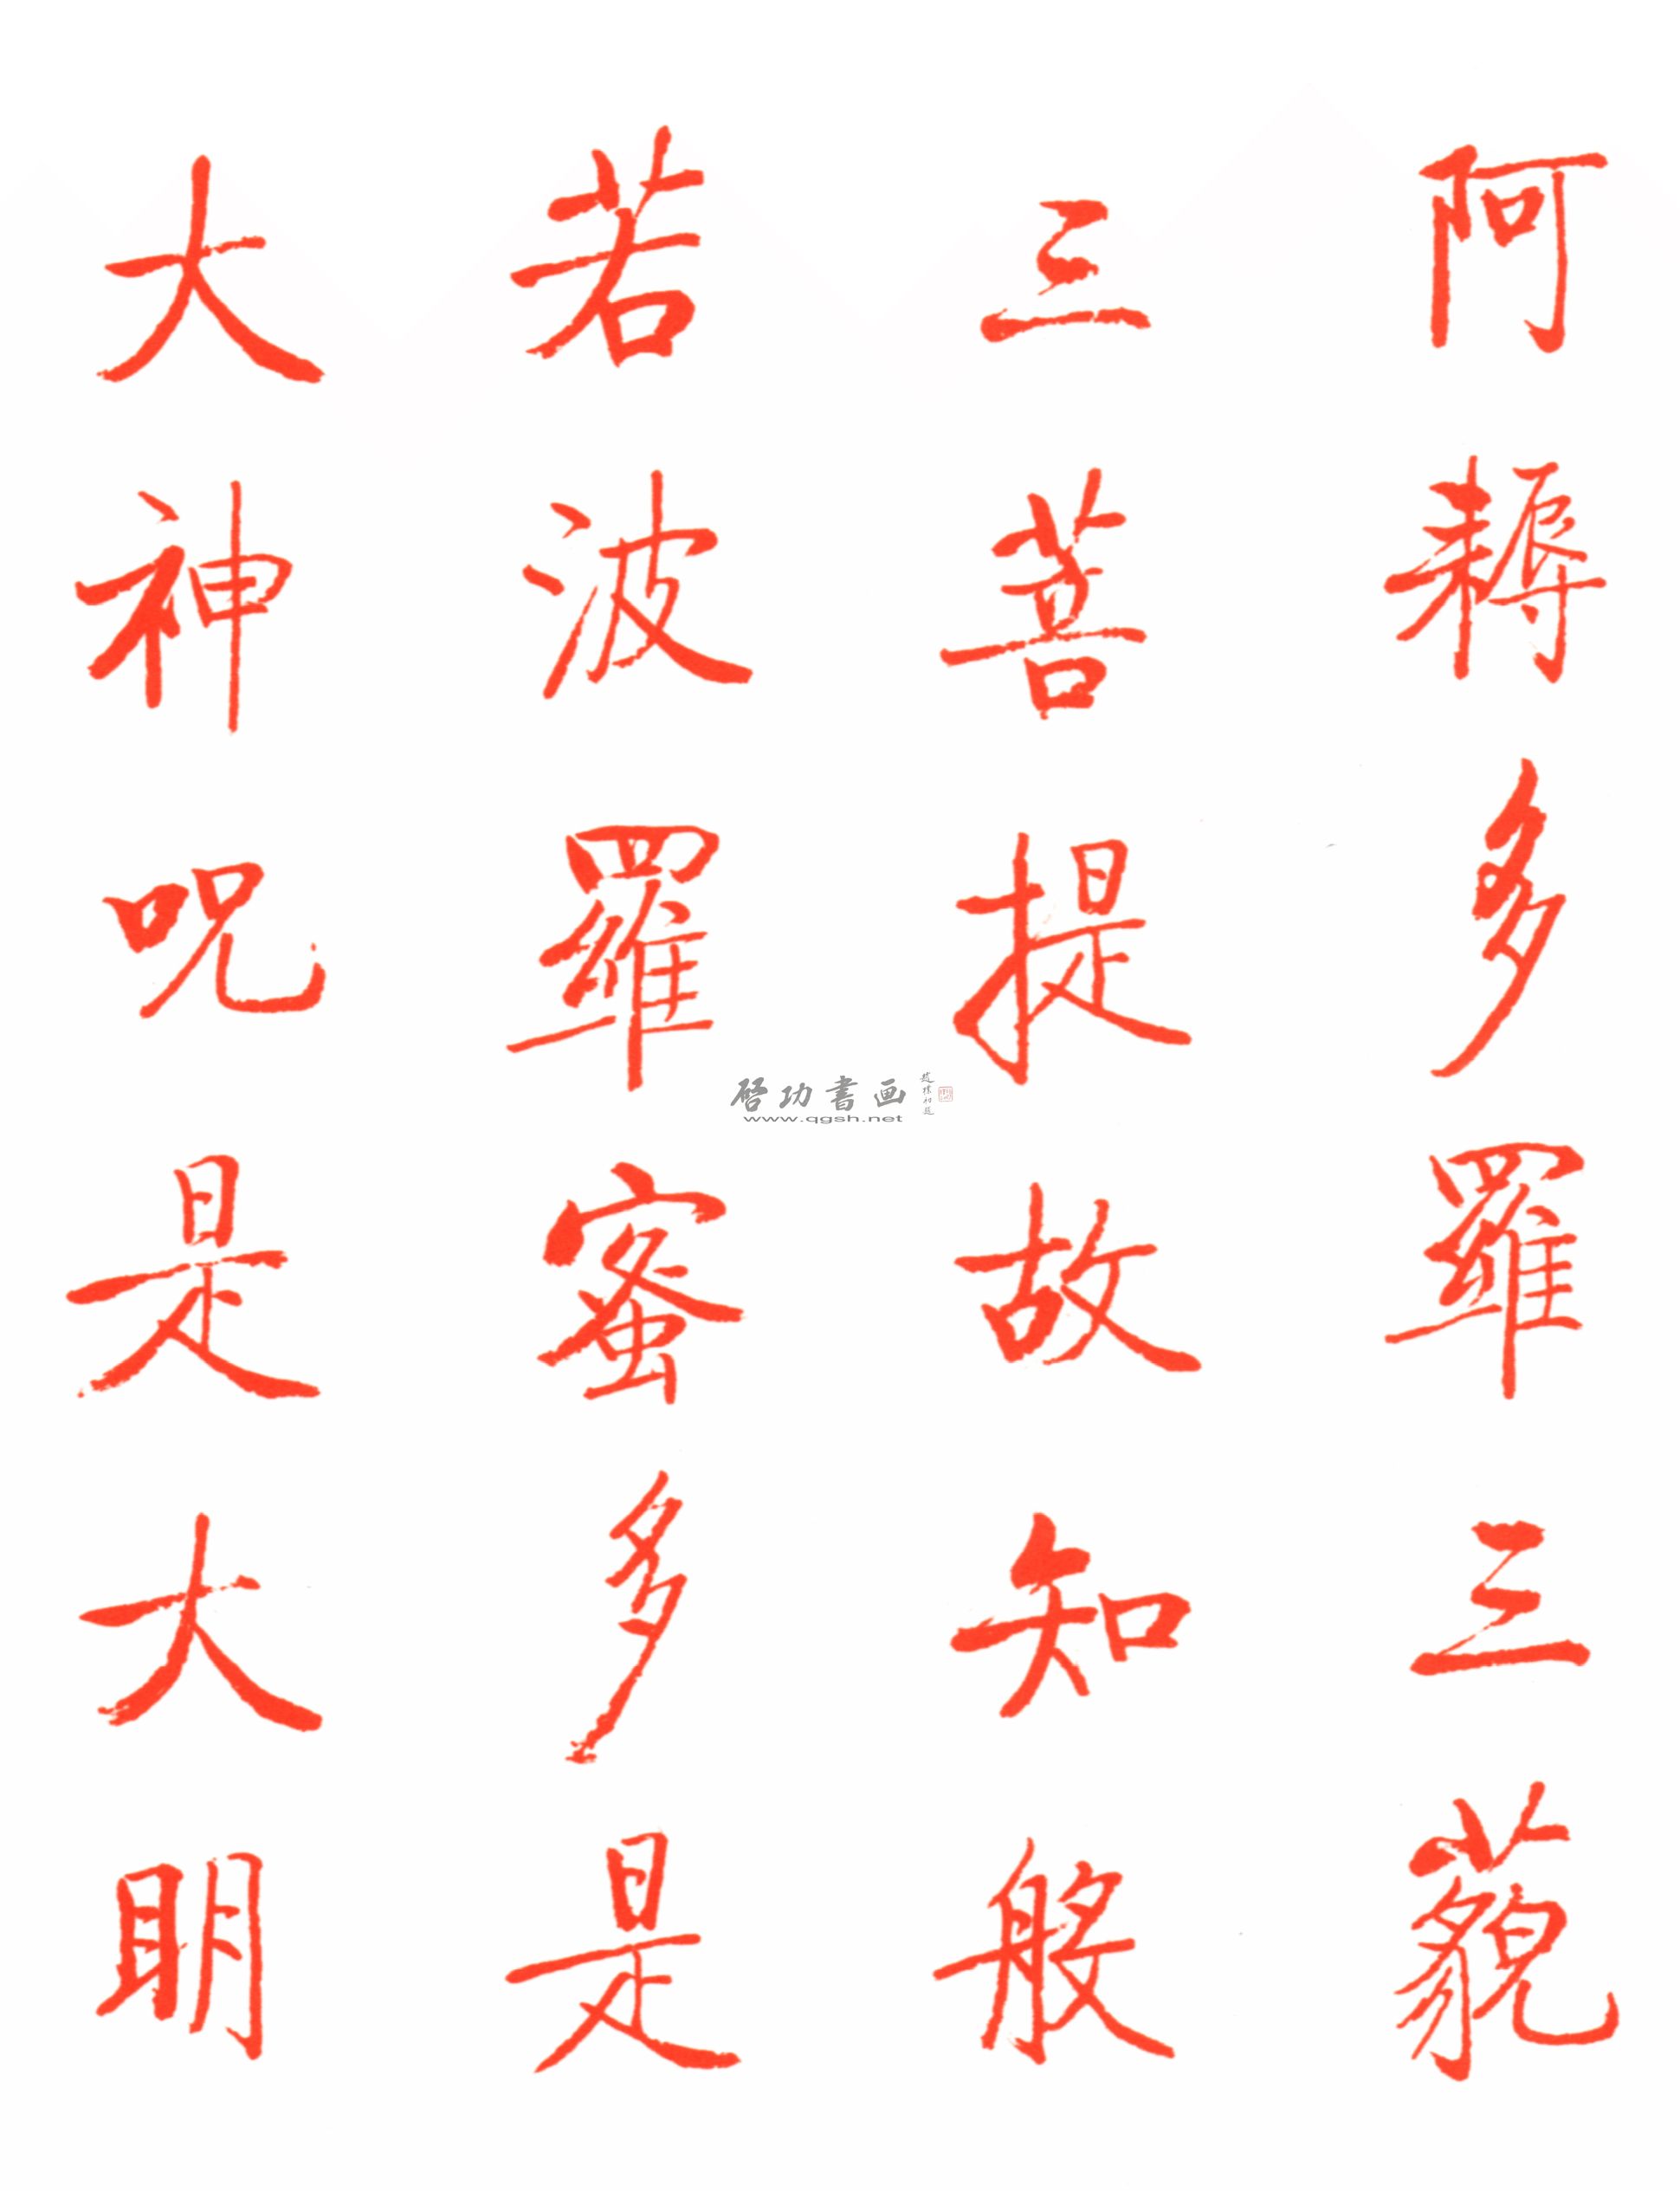 阿耨多羅三藐
三菩提故知般
若波羅蜜多是
大神呪是大明
啓功書画
www.qgsh.net